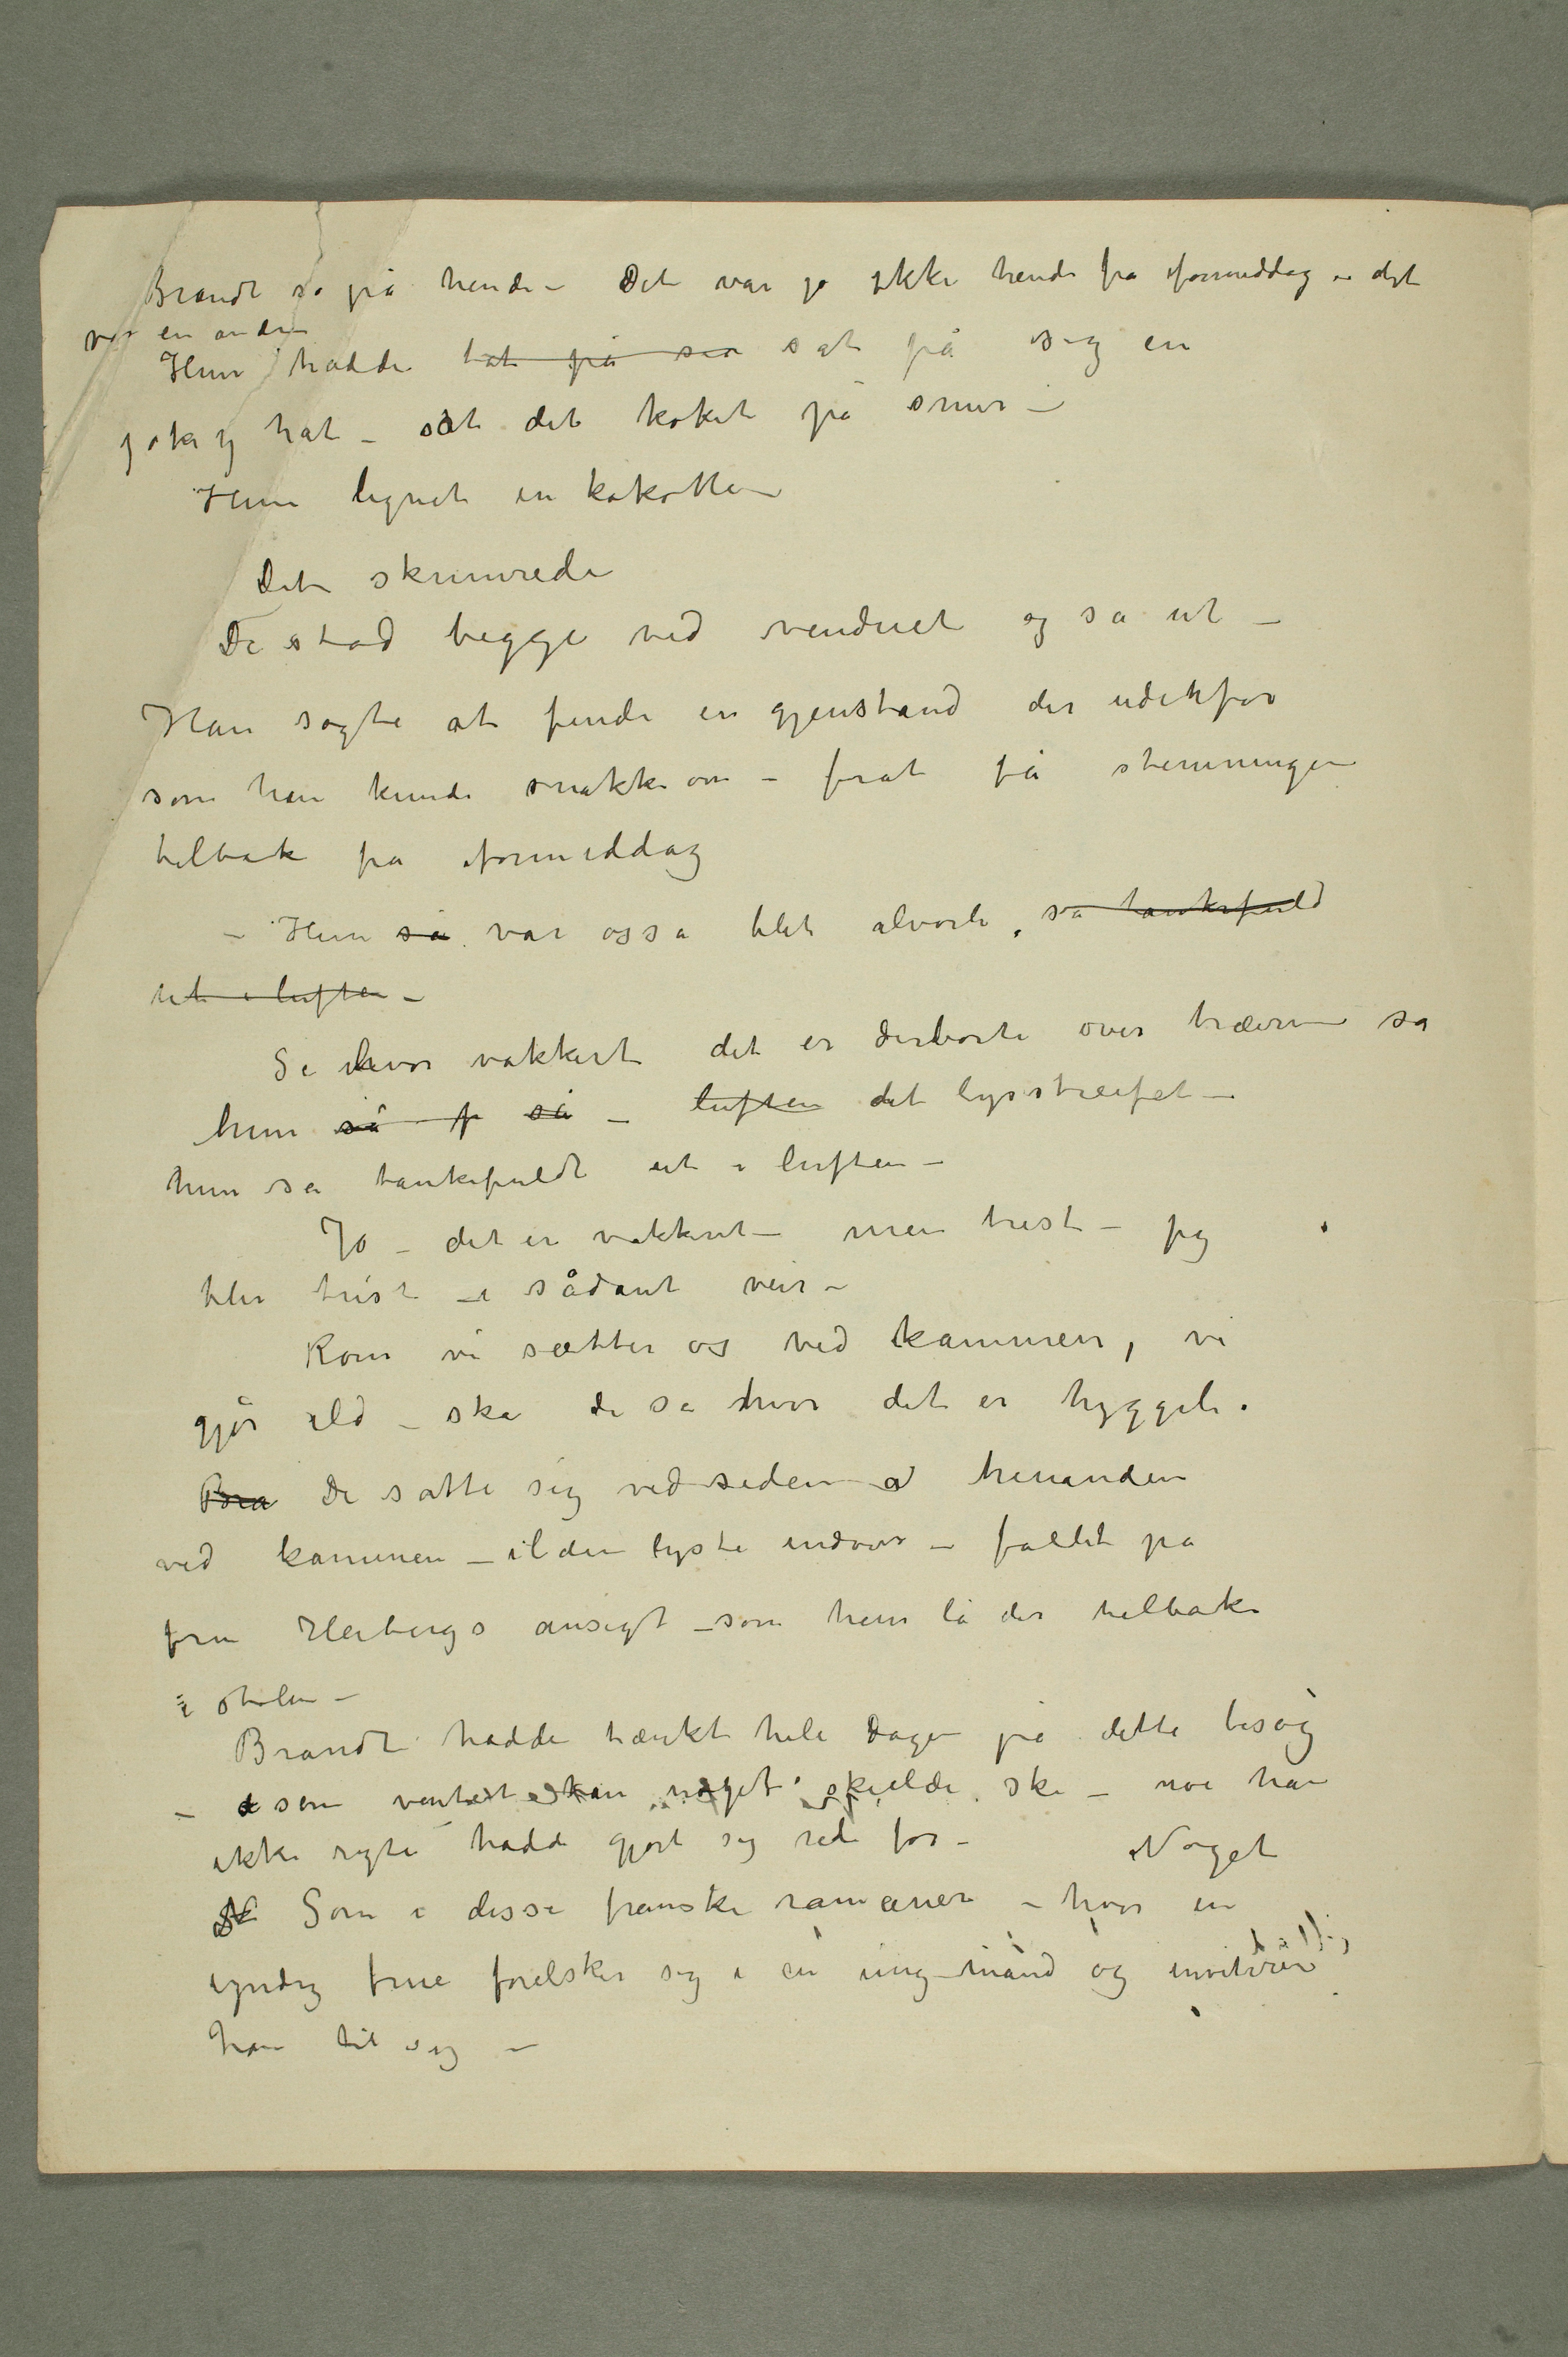 Brandt så på hende – Det var jo ikke hende fra iformiddag – det
var en anden
Hun hadde tat på sia sat på sig en
jokey hat – sat det koket på snur –
Hun lignet en kokotte –
Det skumrede
De stod begge ved vinduet og så ut –
Han søgte at finde en gjenstand der udenfor
som han kunde snakke om – forat få stemningen
tilbak fra iformiddag
– Hun så var osså blit alvorli, så tankefuld
ut i luften –
Se hvor vakkert det er derborte over trærne sa
hun så f så – luften det lysstreifet –
hun så tankefuldt ut i luften –
Jo – det er vakkert – men trist – jeg
blir trist – i sådant veir –
Kom vi sætter os ved kaminen, vi
gjør ild – ska de se hvor det er hyggeli.
Bra De satte sig ved siden a hinanden
ved kaminen – ilden lyste indover – faldt på
fru Heibergs ansigt – som hun lå der tilbake
i stolen –
Brandt hadde tænkt hele Dagen på dette besøg
– som ventet han noget skulde ske – noe han
ikke rigti hadde gjort sig rede for – Noget
N Som i disse franske romaner – hvor en
yndig frue forelsker sig i en ung mand og inviterer
han til sig –